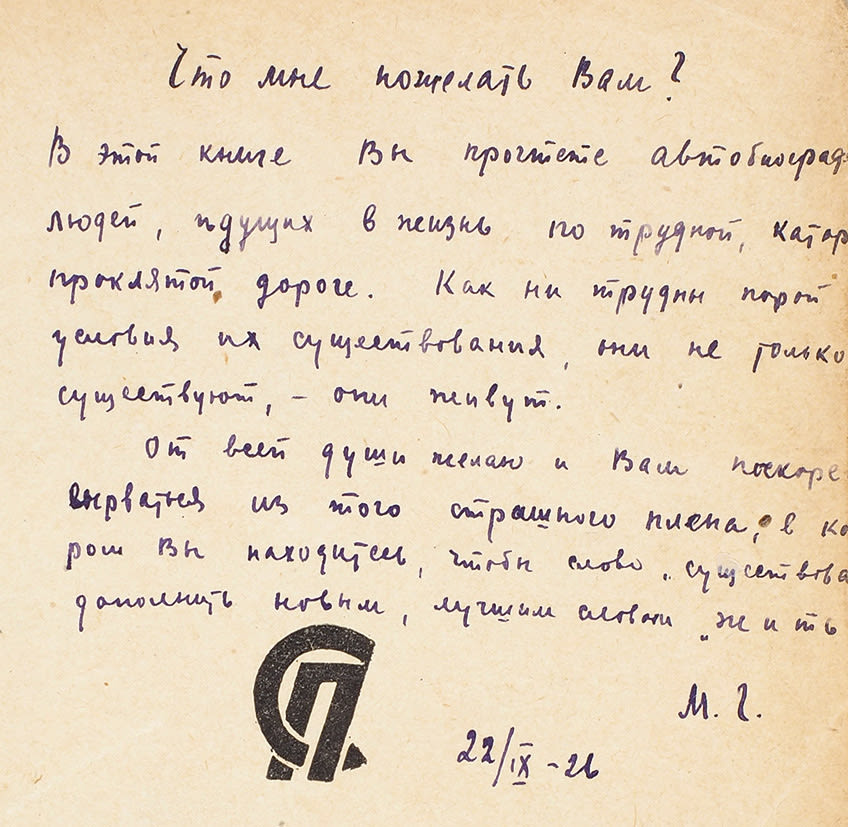 Что мне пожелать Вам?
В этой книге Вы прочтете автобиограф
людей, идущих в жизнь по трудной, катор
проклятой дороге. Как ни трудны порой
условия их существования, они не только
существуют, – они живут.
От всей души желаю и Вам поскоре
вырваться из этого страшного плена, в ко
ром Вы находитесь, чтобы слово „существова
дополнить новым, лучшим словом „жить
М. Г.
22/IX – 26